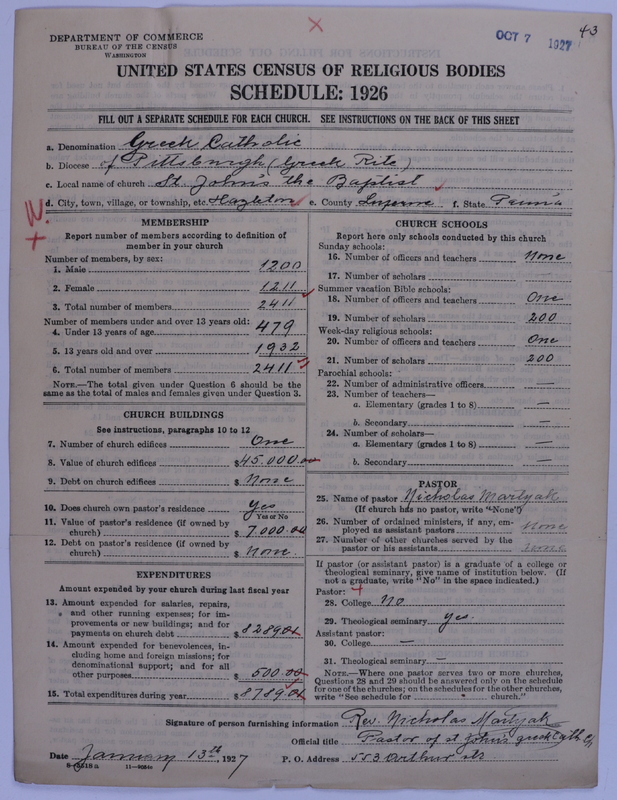 DEPARTMENT OF COMMERCE
BUREAU OF THE CENSUS
WASHINGTON
OCT 7 1927
43
UNITED STATES CENSUS OF RELIGIOUS BODIES
SCHEDULE: 1926
FILL OUT A SEPARATE SCHEDULE FOR EACH CHURCH. SEE INSTRUCTIONS ON THE BACK OF THIS SHEET
a. Denomination Greek Catholic
b. Diocese of Pittsburgh (Greek Rite)
c. Local name of church St. John's the Baptist
d. City, town, village, or township, etc. Hazleton e. County Luzerne f. State Penn'a
W.
MEMBERSHIP
Report number of members according to definition of
member in your church
Number of members, by sex:
1. Male 1200
2. Female 1211
3. Total number of members 2411
Number of members under and over 13 years old:
4. Under 13 years of age 479
5. 13 years old and over 1932
6. Total number of members 2411
NOTE.—The total given under Question 6 should be the
same as the total of males and females given under Question 3.
CHURCH BUILDINGS
See instructions, paragraphs 10 to 12
7. Number of church edifices One
8. Value of church edifices $45.000.00
9. Debt on church edifices $ None
10. Does church own pastor's residence yes
Yes or No
11. Value of pastor's residence (if owned by
church) $ 7.000.00
12. Debt on pastor's residence (if owned by
church) $ None.
EXPENDITURES
Amount expended by your church during last fiscal year
13. Amount expended for salaries, repairs,
and other running expenses; for im-
provements or new buildings; and for
payments on church debt $ 8289.01
14. Amount expended for benevolences, in-
cluding home and foreign missions; for
denominational support; and for all
other purposes $ 500.00
15. Total expenditures during year $ 8789.01
CHURCH SCHOOLS
Report here only schools conducted by this church
Sunday schools:
16. Number of officers and teachers None
17. Number of scholars
Summer vacation Bible schools:
18. Number of officers and teachers One
19. Number of scholars 200
Week-day religious schools:
20. Number of officers and teachers One
21. Number of scholars 200
Parochial schools:
22. Number of administrative officers —
23. Number of teachers—
a. Elementary (grades 1 to 8) —
b. Secondary —
24. Number of scholars—
a. Elementary (grades 1 to 8) —
b. Secondary —
PASTOR
25. Name of pastor Nicholas Martyak
(If church has no pastor, write "None")
26. Number of ordained ministers, if any, em-
ployed as assistant pastors None
27. Number of other churches served by the
pastor or his assistants None
If pastor (or assistant pastor) is a graduate of a college or
theological seminary, give name of institution below. (If
not a graduate, write "No" in the space indicated.)
Pastor:
28. College No
29. Theological seminary yes.
Assistant pastor:
30. College —
31. Theological seminary —
NOTE.—Where one pastor serves two or more churches,
Questions 28 and 29 should be answered only on the schedule
for one of the churches; on the schedules for the other churches,
write "See schedule for church."
Signature of person furnishing information Rev. Nicholas Martyak
Official title Pastor of st John's greek Cath. C
Date January 13th, 1927
P. O. Address 553 Arthur str
8-5518a 11-